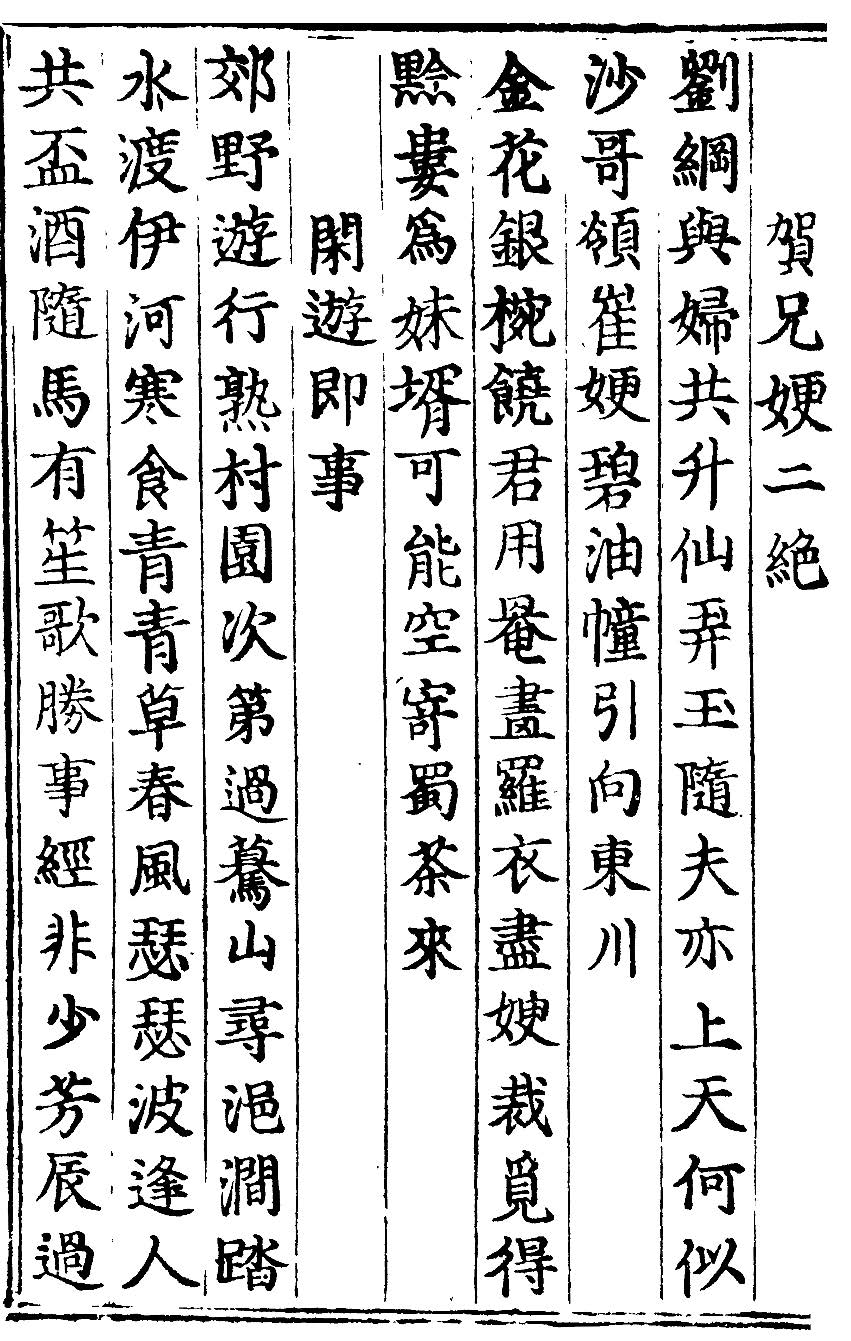 賀兄㛐二絶
劉綱與婦共升仙弄玉隨夫亦上天何似
沙哥領崔㛐碧油幢引向東川
金花銀椀饒君用罨畫羅衣盡嫂裁覓得
黔婁爲妹壻可能空寄蜀茶來
閑遊即事
郊野遊行熟村園次第過驀山尋浥澗踏
水渡伊河寒食青青草春風瑟瑟波逢人
共盃酒隨馬有笙歌勝事經非少芳辰過